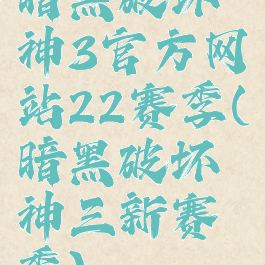 暗黑破坏
神3官方网
站22赛季(
暗黑破坏
神三新赛
季)